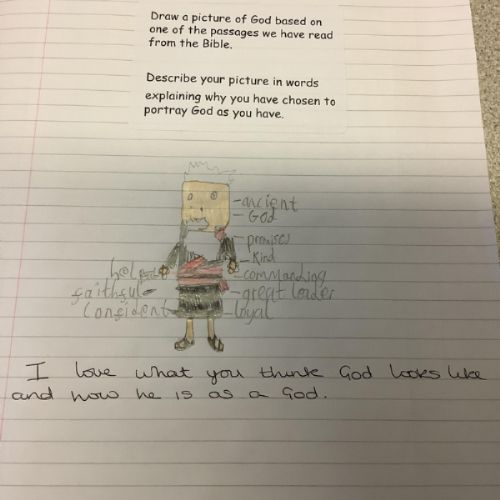 Draw a picture of God based on
one of the passages we have read
from the Bible.
Describe your picture in words
explaining why you have chosen to
portray God as you have.
-ancient
-God
-promises
-Kind
-commanding
-great leader
-loyal
helpful
faithful
Confident
I love what you think God looks like
and how he is as a God.